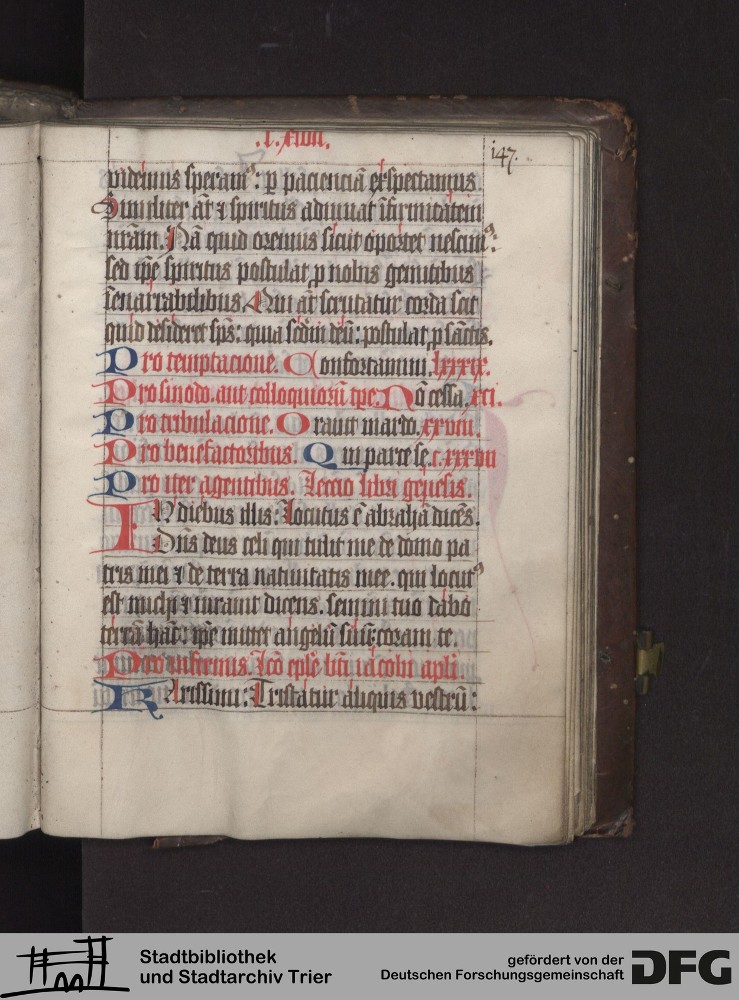 147.
videmus speram⁹: ꝑ pacienciā exspectamus.
Similiter āt ⁊ spiritus adiuuat īfirmitatem
nrām. Nā quid oremus sicut oportet nescim⁹.
sed ip̄e spiritus postulat ꝓ nobis gemitibus
īenarrabilibus. Qui āt scrutatur corda scit
quid desideret sp̄s: quia scd̄m deū: postulat ꝓ sāctis.
Pro temptacione. Confortamini. lxxxix.
Pro sinodo. aut colloquiorū tp̄e. Nō cessa. xci.
Pro tribulacione. Orauit mardo. xxviii.
Pro benefactoribus. Qui parce se. c.xxxvii
Pro iter agentibus. Leccio libri genesis.
IN diebus illis: Locutus ē abrahā dicēs.
Dn̄s deus celi qui tulit me de domo pa
tris mei ⁊ de terra natiuitatis mee. qui locut⁹
est michi ⁊ iurauit dicens. semini tuo dabo
terrā hāc: ip̄e mittet angelū suū coram te.
Pro infirmis. Lc̄o ep̄le bt̄i iacobi apl̄i.
Karissimi: Tristatur aliquis vestrū:
Stadtbibliothek
und Stadtarchiv Trier
gefördert von der
Deutschen Forschungsgemeinschaft
DFG